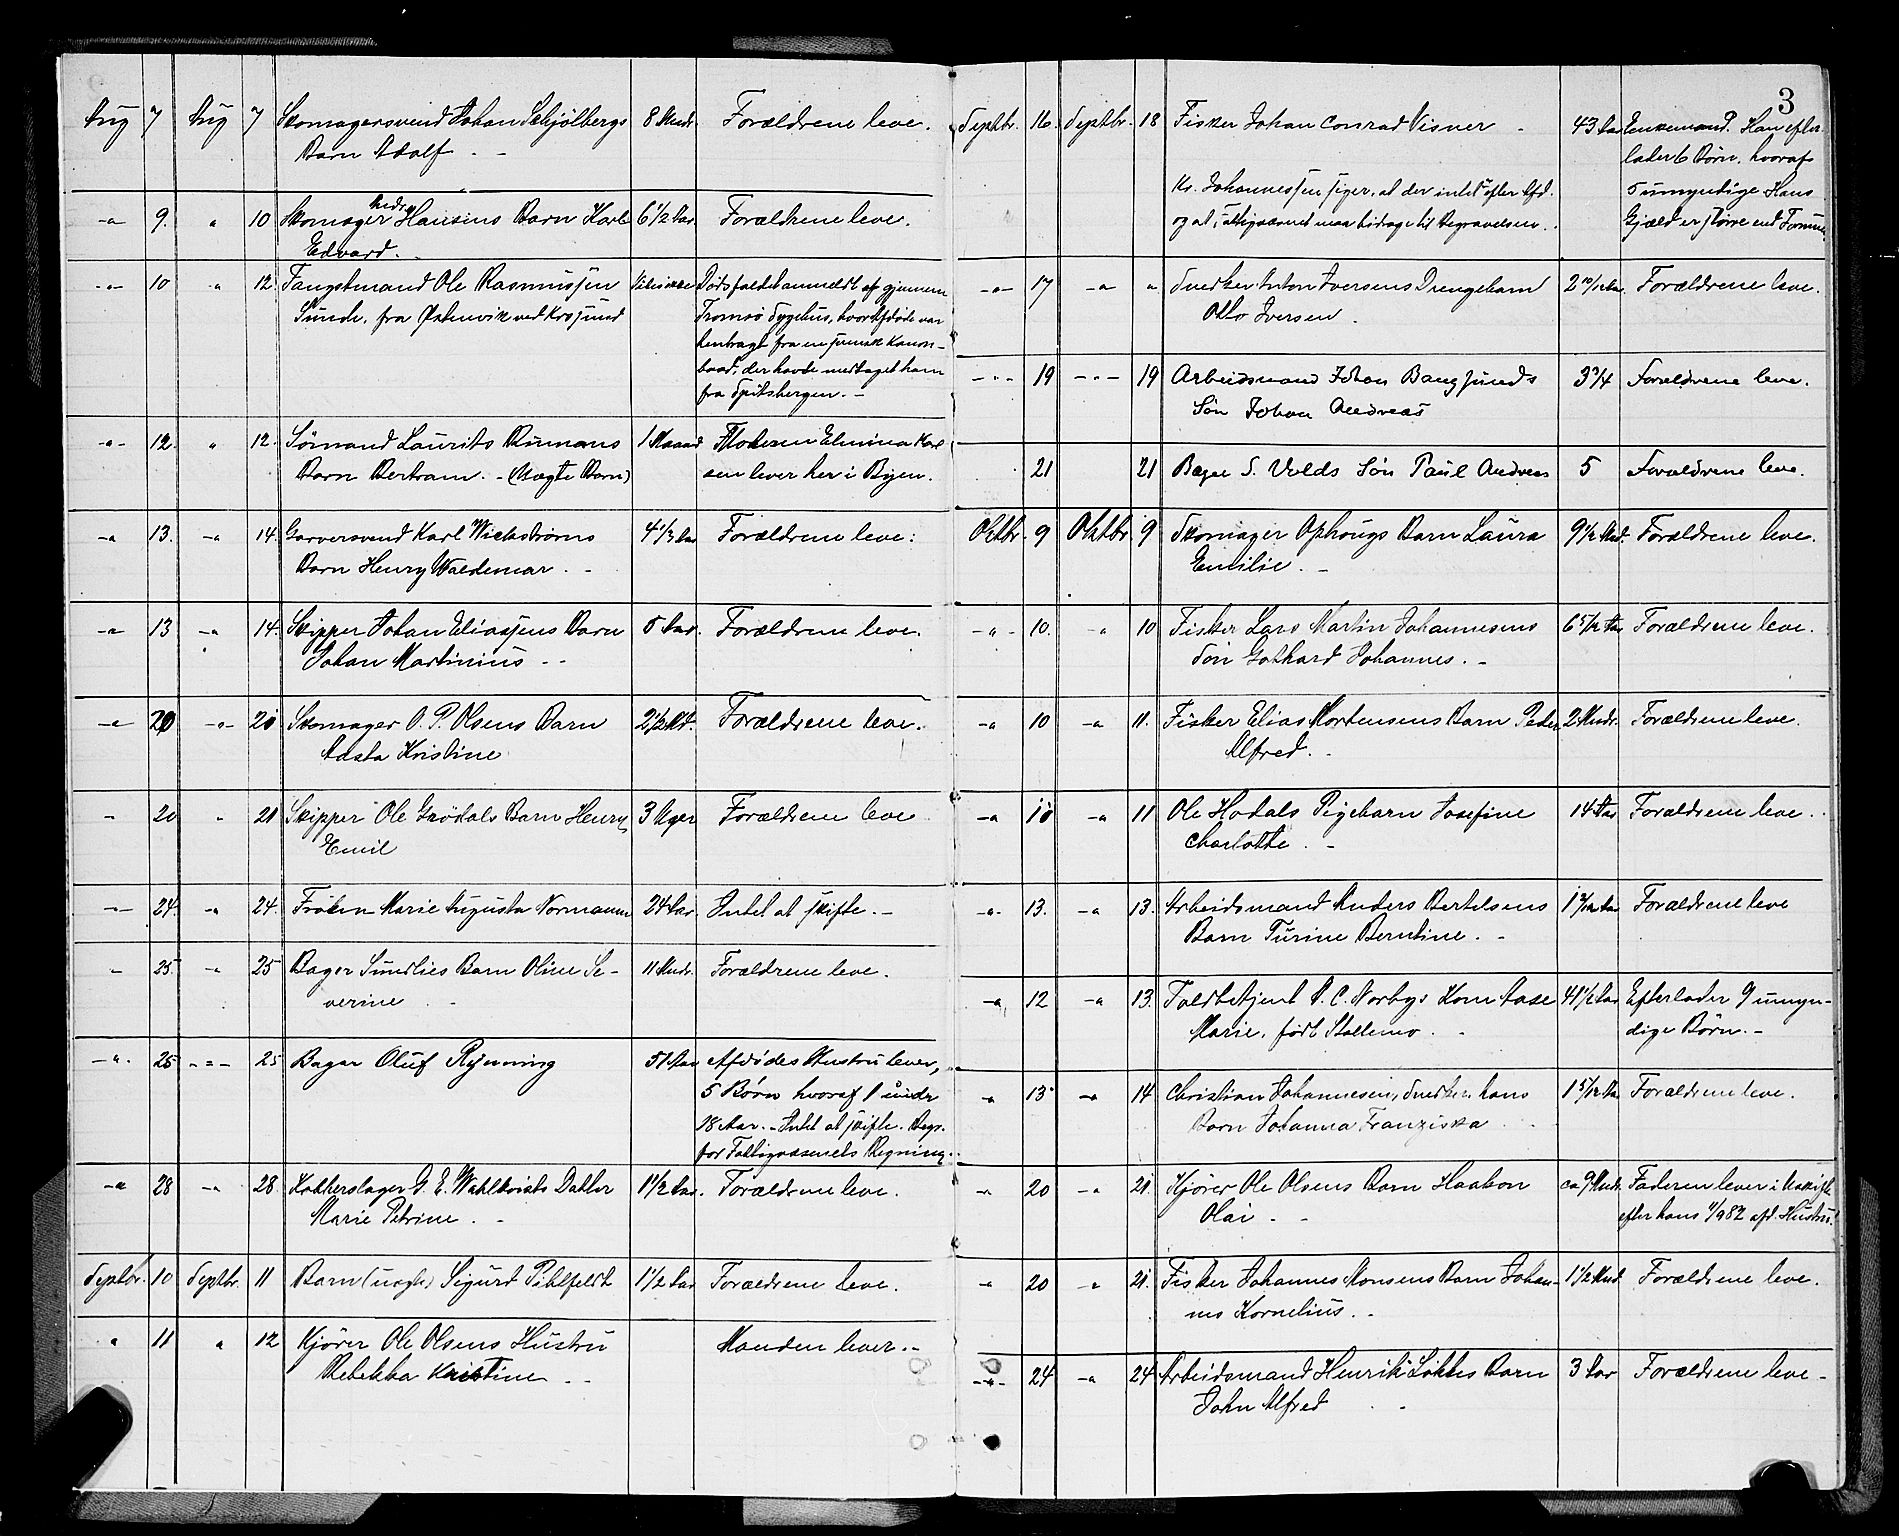 Aug 7 Aug 7 Skomagersvend Johan Schjølbergs 8 Mdr. Forældrene leve.
Barn Adolf. -
-"- 9. " 10 Skomager Andr. Hansens Barn Karl 6 1/2 Aar. Forældrene leve.
Edvard. -
-"- 10 " 12. Fangstmand Ole Rasmussen Dødsfaldet anmeldt af gjennem
Sunde, fra Østervik ved Tromsø Sygehus, hvor Afdøde var
henbragt fra en svensk Kanon-
baad, der havde medtaget ham
fra Spitsbergen. -
-"- 12. " 12. Sømand Laurits Bumans 1 Maaned Moderen Elmina Karl
Barn Bertram. - (Uægte Barn) sen lever her i Byen.
-"- 13. -"- 14. Garversvend Karl Wickstrøms 4 1/3 Aar Forældrene leve.
Barn Henry Waldemar. -
-"- 13 -"- 14. Skipper Johan Eliassens Barn 5 Aar. Forældrene leve.
Johan Martinius - -
-"- 20 -"- 20 Skomager O. P. Olsens Barn Forældrene leve.
Adsta Kristine
- 20 " 21 Skipper Ole Grödals Barn Henry 3 Uger Forældrene leve
Emil
-"- 24. -"- 24. Frøken Marie Augusta Normann 24 Aar. Intet at skifte. -
- 25. -"- 25 Bager Sundlies Barn Oline Se- 11 Mdr. Forældrene leve.
verine -
-"- 25 -"- 25 Bager Oluf Rynning 51 Aar Afdødes Hustru lever,
5 Børn hvoraf 1 under
18 Aar. - Intet at skifte. Begr.
for Fattigvæsenets Regning.
-"- 28 -"- 28. Kobberslager G. E. Wahlkvists Datter 1 1/2 Aar. Forældrene leve.
Marie Petrine. -
Septbr. 10 Septbr. 11 Barn (uægte) Sigurd Pihlfeldt 1 1/2 Aar Forældrene leve.
" 11 " 12 Kjører Ole Olsens Hustru Manden lever. -
Rebekka Kristine - -
3
Septbr. 16. Septbr. 18 Fisker Johan Conrad Visner - 43 Aar Enkemand. Han efter-
lader 6 Børn, hvoraf
Kr. Johannessen siger, at der intet efter Afd. 5 umyndige. Hans
og at Fattigvæsenet maa bidrage til Begravelsen. Gjæld er større end Formuen
-"- 17 -"- " Snedker Anton Iversens Drengebarn 2 10/12 Aar. Forældrene leve.
Otto Iversen.
-"- 19 -"- 19 Arbeidsmand Johan Bangsunds 3 3/4 Forældrene leve.
Søn Johan Andreas
21 21 Bager S. Volds Søn Paul Andreas 5 Forældrene leve.
Oktbr. 9 Oktbr 9 Skomager Ophougs Barn Laura 9 1/2 Md. Forældrene leve.
Emilie. -
-"- 10. -"- 10 Fisker Lars Martin Johannesens 6 5/12 Aar Forældrene leve.
Søn Gothard Johannes. -
-"- 10 -"- 11. Fisker Elias Mortensens Barn Peder 2 Mdr. Forældrene leve.
Alfred. -
-"- 11 Ole Hodals Pigebarn Josefine 14 Aar Forældrene leve.
Charlotte. -
-"- 13. -"- 13. Arbeidsmand Anders Bertelsens Forældrene leve
Barn Turine Berntine. -
-"- 12 -"- 13. Toldbetjent A. C. Norbys Kone Aase 41 1/2 Aar Efterlader 9 umyn-
Marie, født Stollemo. - dige Børn. -
-"- 13 -"- 14 Christian Johannesen, Snedker, hans 1 5/12 Aar Forældrene leve.
Barn Johanna Franziska
-"- 20 -"- 21. Kjører Ole Olsens Barn Haakon ca 9 Mdr. Faderen lever i uskifte
Olai - - efter hans 11/9 82 afd. Hustru.
" 20 -"- 21. Fisker Johannes Monsens Barn Johan- 1 1/2 Md. Forældrene leve.
nes Kornelius. -
-"- 24 -"- 24 Arbeidsmand Henrik Løkkes Barn 3 Aar Forældrene leve -
John Alfred -